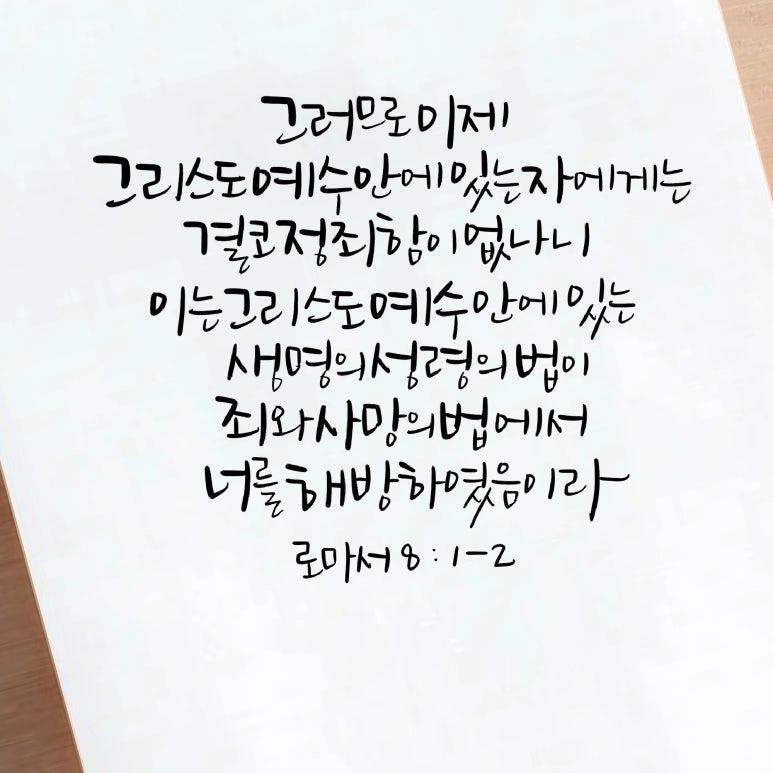 그러므로 이제
그리스도 예수 안에 있는 자에게는
결코 정죄함이 없나니
이는 그리스도 예수 안에 있는
생명의 성령의 법이
죄와 사망의 법에서
너를 해방하였음이라
로마서 8:1-2